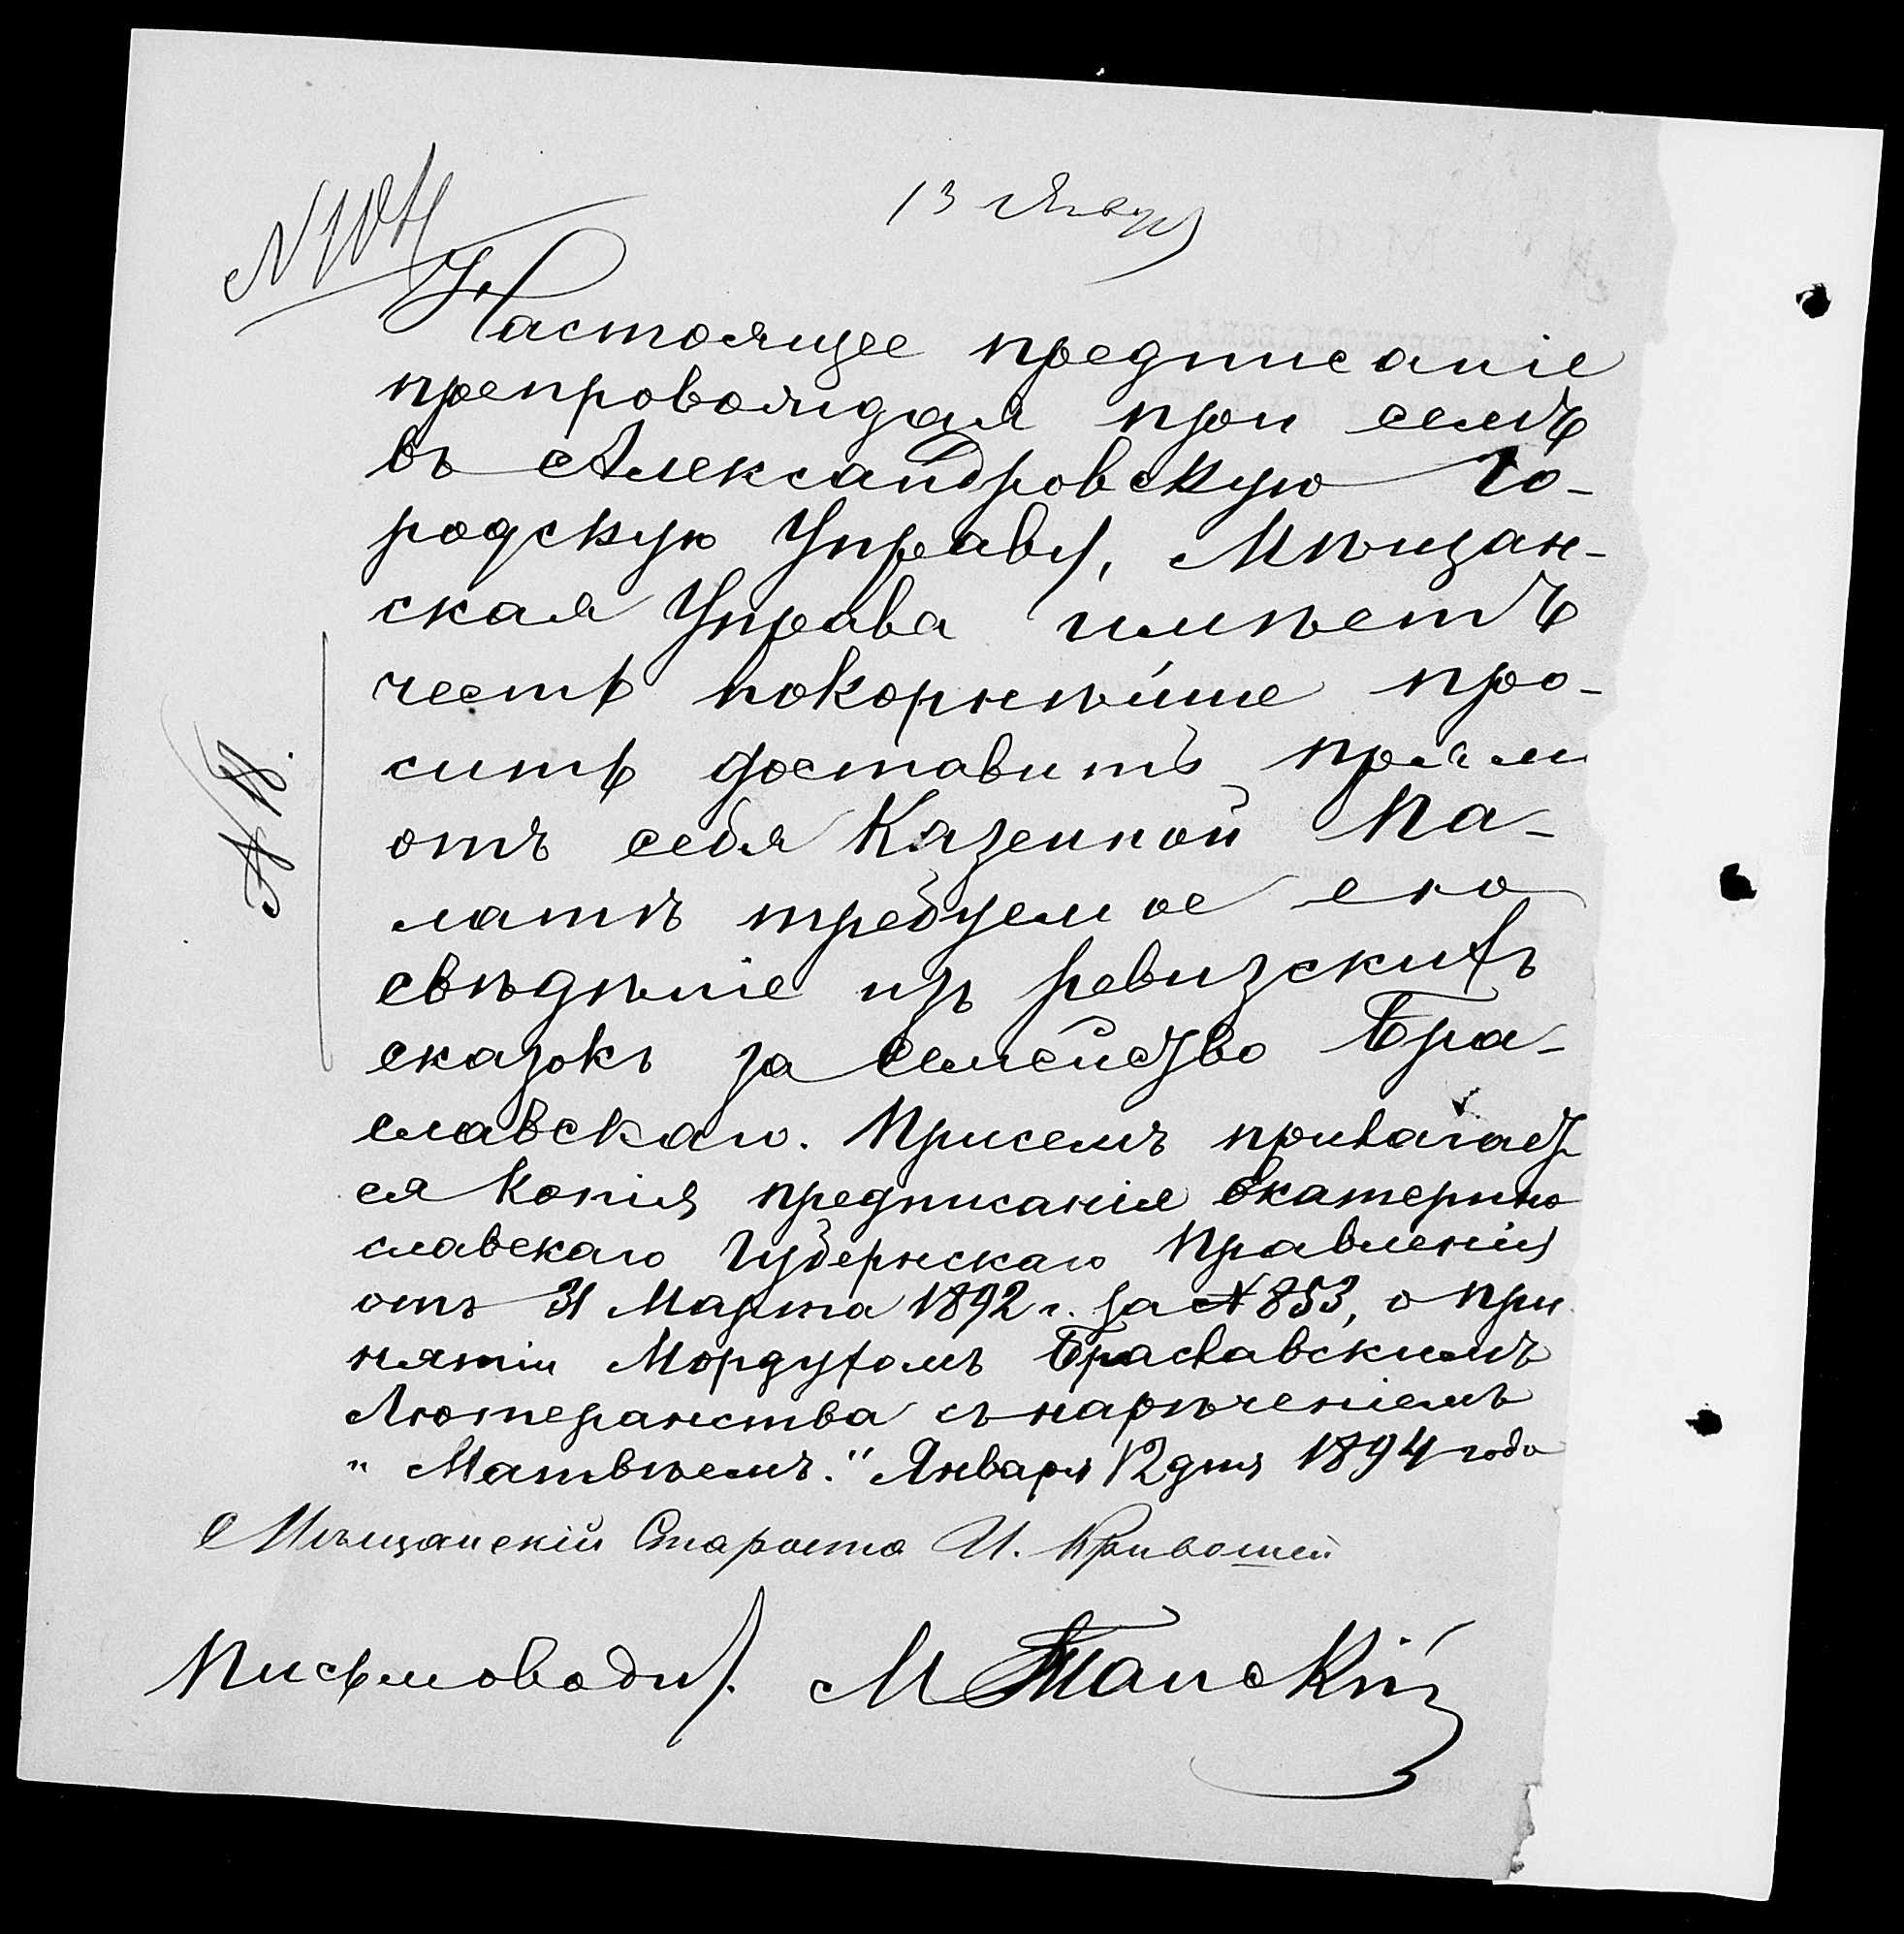 13 Январ
Настоящее предписаніе
препровождая при семъ
въ Александровскую Го-
родскую Управу, Мѣщан-
ская Управа имѣетъ
честь покорнѣйше про-
сить доставить прями
отъ себя Казенной Па-
латѣ требуемое ею
свѣдѣніе изъ ревизскихъ
сказокъ за семейство Бра-
славскаго. Присемъ прилагает
ся копія предписанія Екатерино
славскаго Губернскаго Правленія
отъ 31 Марта 1892 г. за № 853, о при
нятіи Мордухомъ Браславскимъ
Лютеранства съ нарѣченіемъ
"Матвѣемъ." Января 12 дня 1894 года
Мѣщанскій Староста И. Кривошей
Письмоводит. М